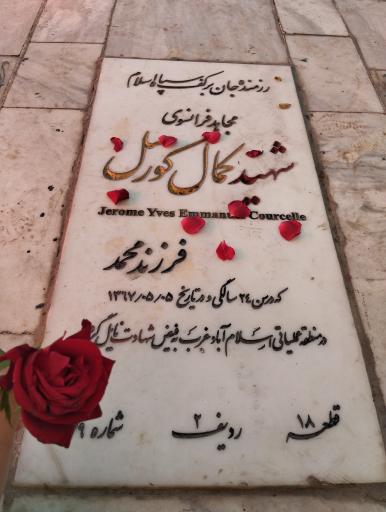 رزمنده جان برکف سپاه اسلام
مجاهد فرانسوی
شهید کمال کورسل
Jerome Yves Emmanuel Courcelle
فرزند محمد
که در سن ۲۴ سالگی و در تاریخ ۱۳۶۷/۰۵/۰۵
در منطقه عملیاتی اسلام آباد غرب به فیض شهادت نایل
قطعه ۱۸ ردیف ۲ شماره ۹